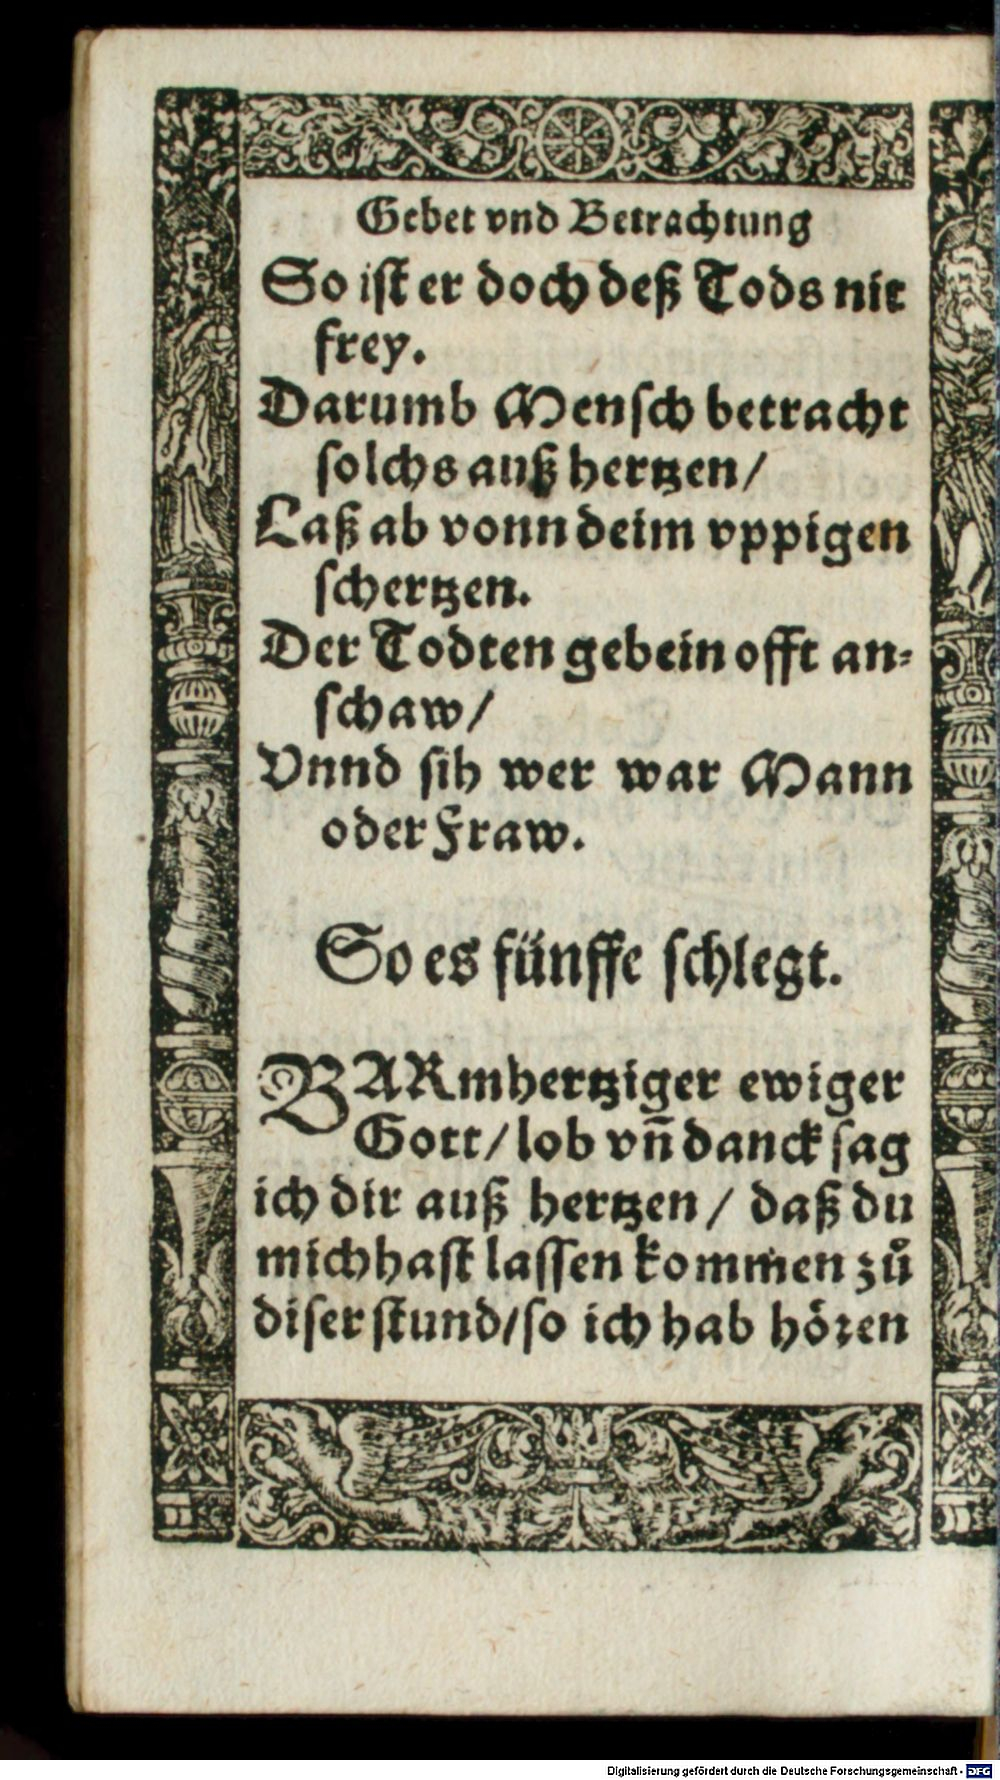 Gebet vnd Betrachtung
So ist er doch deß Tods nit
frey.
Darumb Mensch betracht
solchs auß hertzen/
Laß ab vonn deim vppigen
schertzen.
Der Todten gebein offt an-
schaw/
Vnnd sih wer war Mann
oder Fraw.
So es fünffe schlegt.
BARmhertziger ewiger
Gott/ lob vn̄ danck sag
ich dir auß hertzen/ daß du
mich hast lassen kommen zuͦ
diser stund/ so ich hab hoͤren
Digitalisierung gefördert durch die Deutsche Forschungsgemeinschaft - DFG